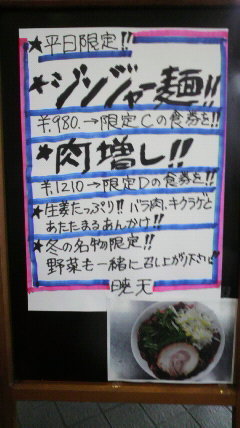 ★平日限定!!
★ジンジャー麺!!
¥.980.→限定Cの食券を!!
★肉増し!!
¥.1210→限定Dの食券を!!
★生姜たっぷり!! バラ肉、キクラゲと
あたたまるあんかけ!!
★冬の名物限定!!
野菜も一緒に召し上がり下さい!!
暁天